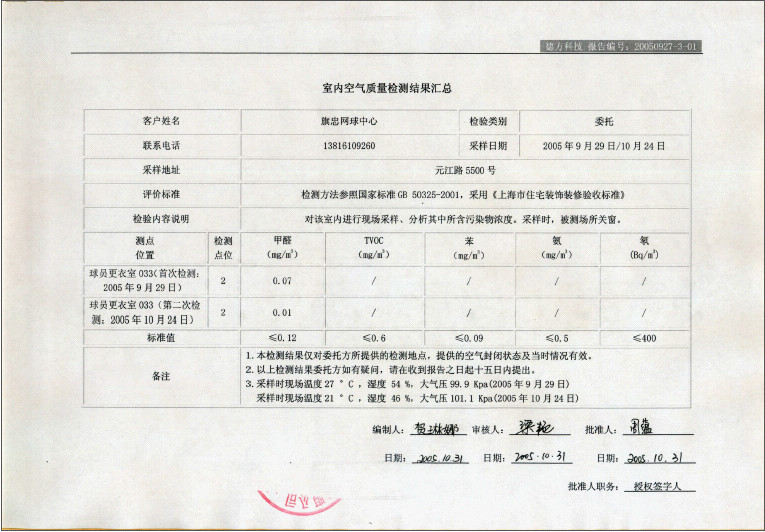 德方科技 报告编号：20050927-3-01
室内空气质量检测结果汇总
客户姓名 旗忠网球中心 检验类别 委托
联系电话 13816109260 采样日期 2005 年 9 月 29 日/10 月 24 日
采样地址 元江路 5500 号
评价标准 检测方法参照国家标准 GB 50325-2001，采用《上海市住宅装饰装修验收标准》
检验内容说明 对该室内进行现场采样、分析其中所含污染物浓度。采样时，被测场所关窗。
测点 检测 甲醛 TVOC 苯 氨 氡
位置 点位 (mg/m³) (mg/m³) (mg/m³) (mg/m³) (Bq/m³)
球员更衣室 033（首次检测： 2 0.07 / / / /
2005 年 9 月 29 日）
球员更衣室 033（第二次检 2 0.01 / / / /
测：2005 年 10 月 24 日）
标准值 ≤0.12 ≤0.6 ≤0.09 ≤0.5 ≤400
备注
1. 本检测结果仅对委托方所提供的检测地点，提供的空气封闭状态及当时情况有效。
2. 以上检测结果委托方如有疑问，请在收到报告之日起十五日内提出。
3. 采样时现场温度 27 °C ，湿度 54 %，大气压 99.9 Kpa(2005 年 9 月 29 日)
采样时现场温度 21 °C ，湿度 46 %，大气压 101.1 Kpa(2005 年 10 月 24 日)
编制人： 审核人： 批准人：
日期：2005.10.31 日期：2005.10.31 日期：2005.10.31
批准人职务：授权签字人